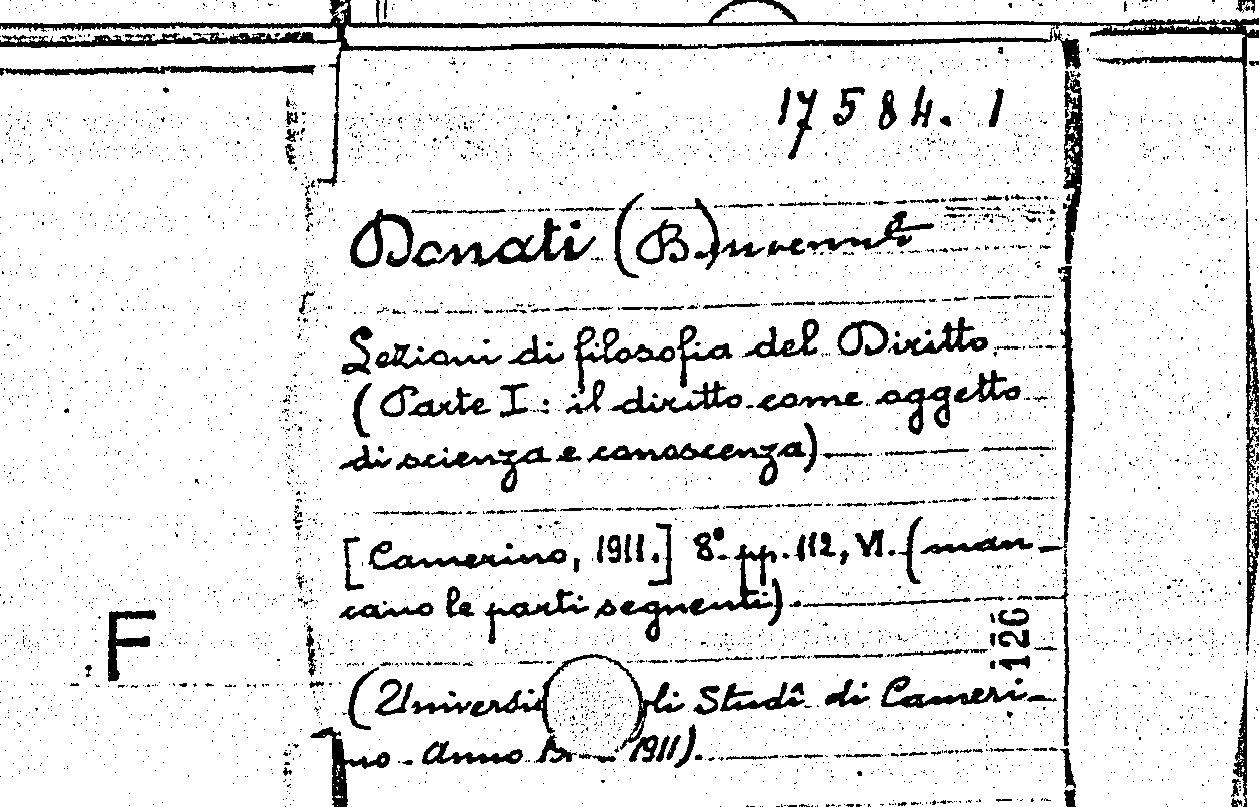 17584. 1
Donati (B.)nvenuto
Lezioni di filosofia del Diritto
(Parte I: il diritto come oggetto
di scienza e conoscenza).
[Camerino, 1911.] 8° pp. 112, VI. (man-
cano le parti segnenti).
F
126
(Universi li Studî di Cameri-
no. Anno 1911).